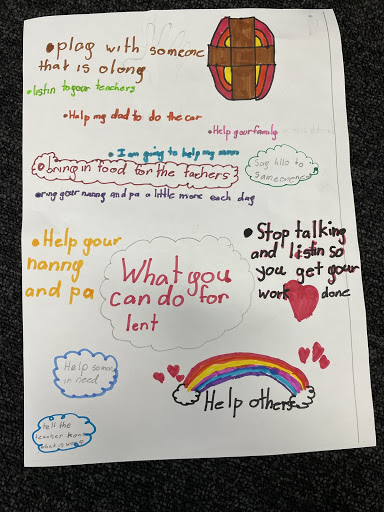 •play with someone
that is olong
•listin to your teachers
•Help my dad to do the car
•Help your family
•I am going to help my mum
•bring in food for the tachers
Say hllo to
someone
•ring your nanng and pa a little more each day
•Help your
nanng
and pa
What you
can do for
lent
•Stop talking
and listin so
you get your
work done
Help
in need
Help others
tell the
teacher
what is